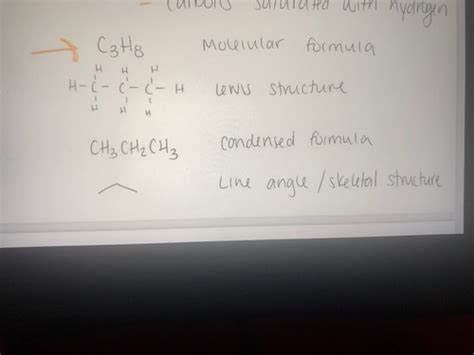 - Carbons saturated with hydrogen
C3H8 Molecular formula
H H H
H-C-C-C-H Lewis structure
H H H
CH3CH2CH3 condensed formula
Line angle/skeletal structure